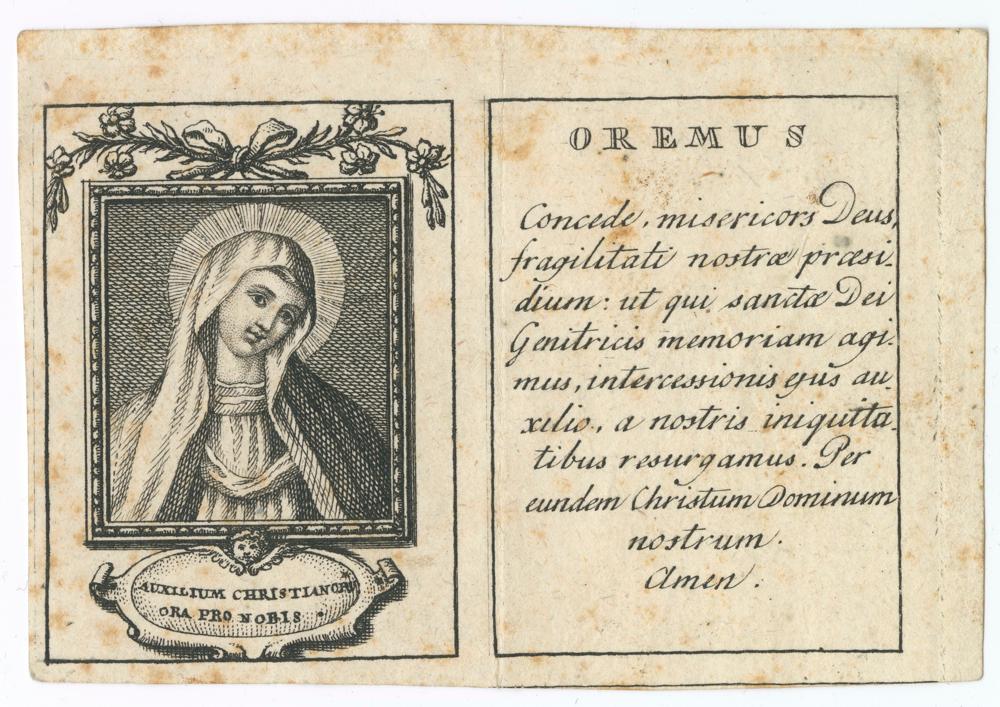 AUXILIUM CHRISTIANORU
ORA PRO NOBIS.
OREMUS
Concede, misericors Deus,
fragilitati nostræ præsi-
dium: ut qui sanctæ Dei
Genitricis memoriam agi-
mus, intercessionis ejus au-
xilio, a nostris iniquita-
tibus resurgamus. Per
eundem Christum Dominum
nostrum.
Amen.